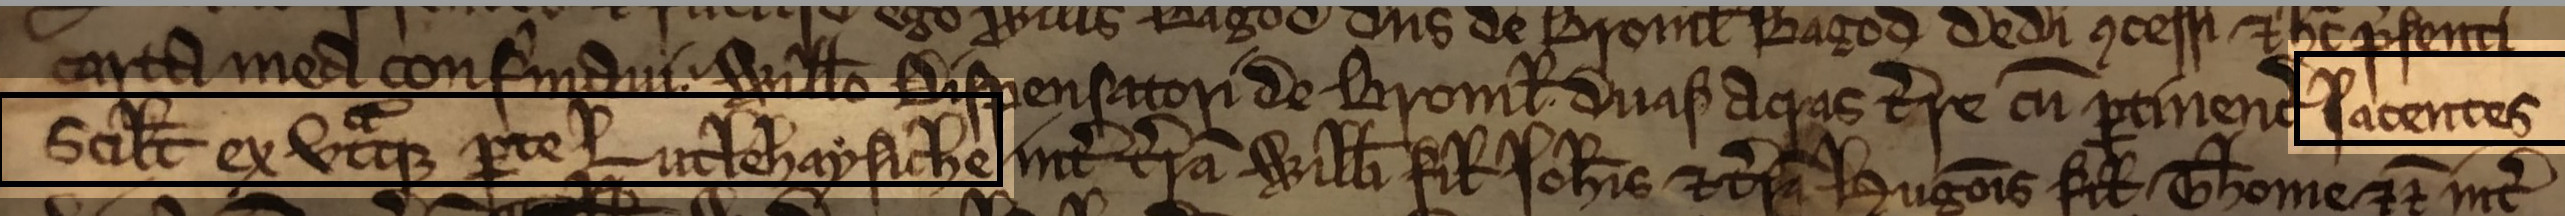 ego Wills Bagod dns de Broml Bagod dedi ꝯcessi ⁊ hc p̱senti
carta mea confirmaui Willo Dispensatori de Broml duas acras t̄re cū ptinend Jacentes
Scilt ex vtᵃqꝫ ꝑte Lutlehaysiche int̄ t̄rā Willi fil Joh̄is ⁊ t̄rā Hugōis fil Thome ⁊ int̄